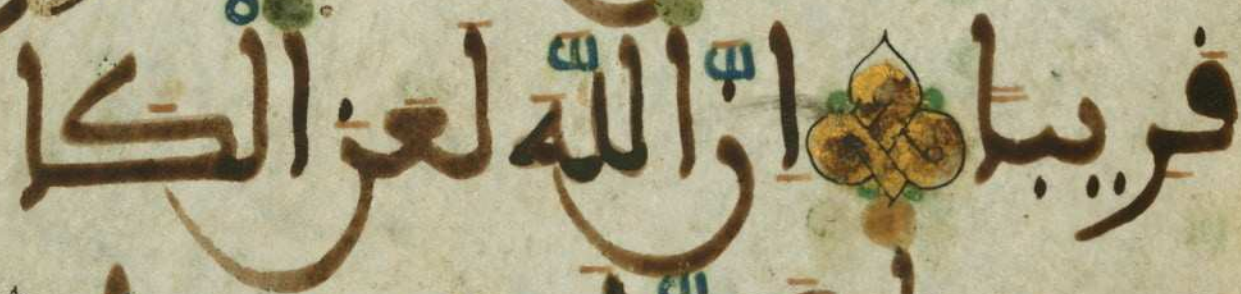 قَرِيبًا إِنَّ اللَّهَ لَعَنَ الْكَا